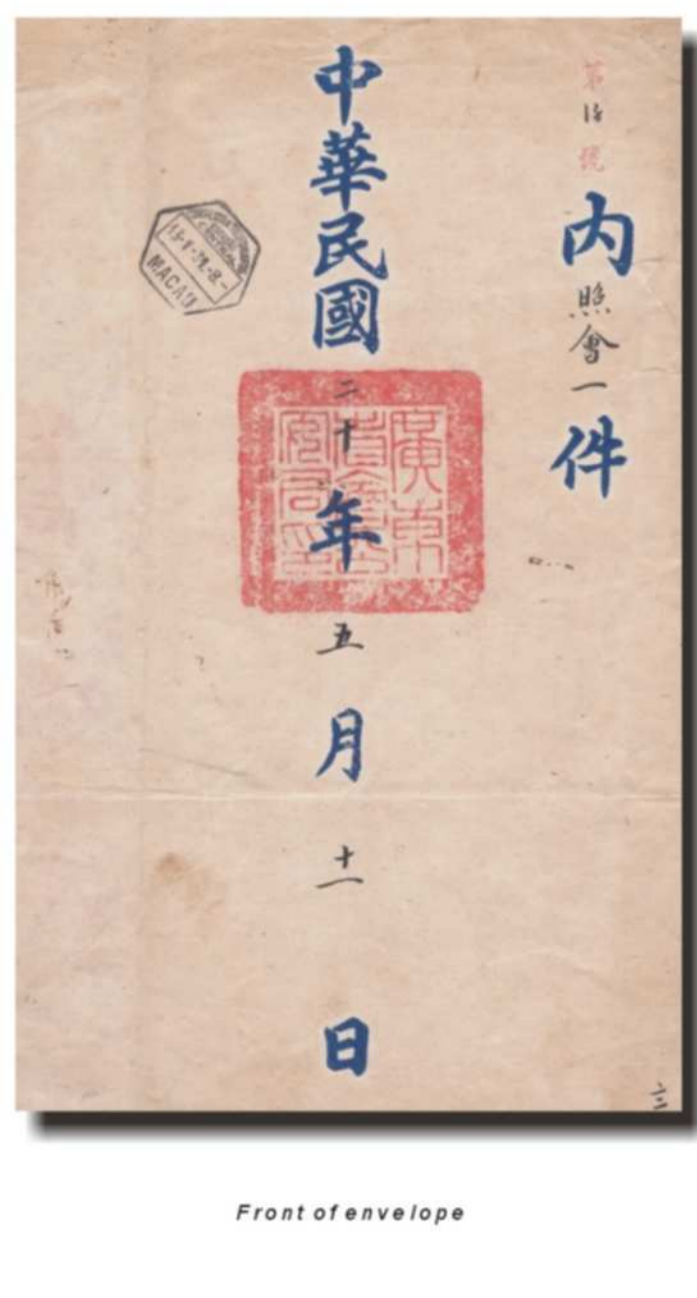 第 號
内照會一件
中華民國二十年五月十一日
廣東
省會公
安局印
MACAU
Front of envelope